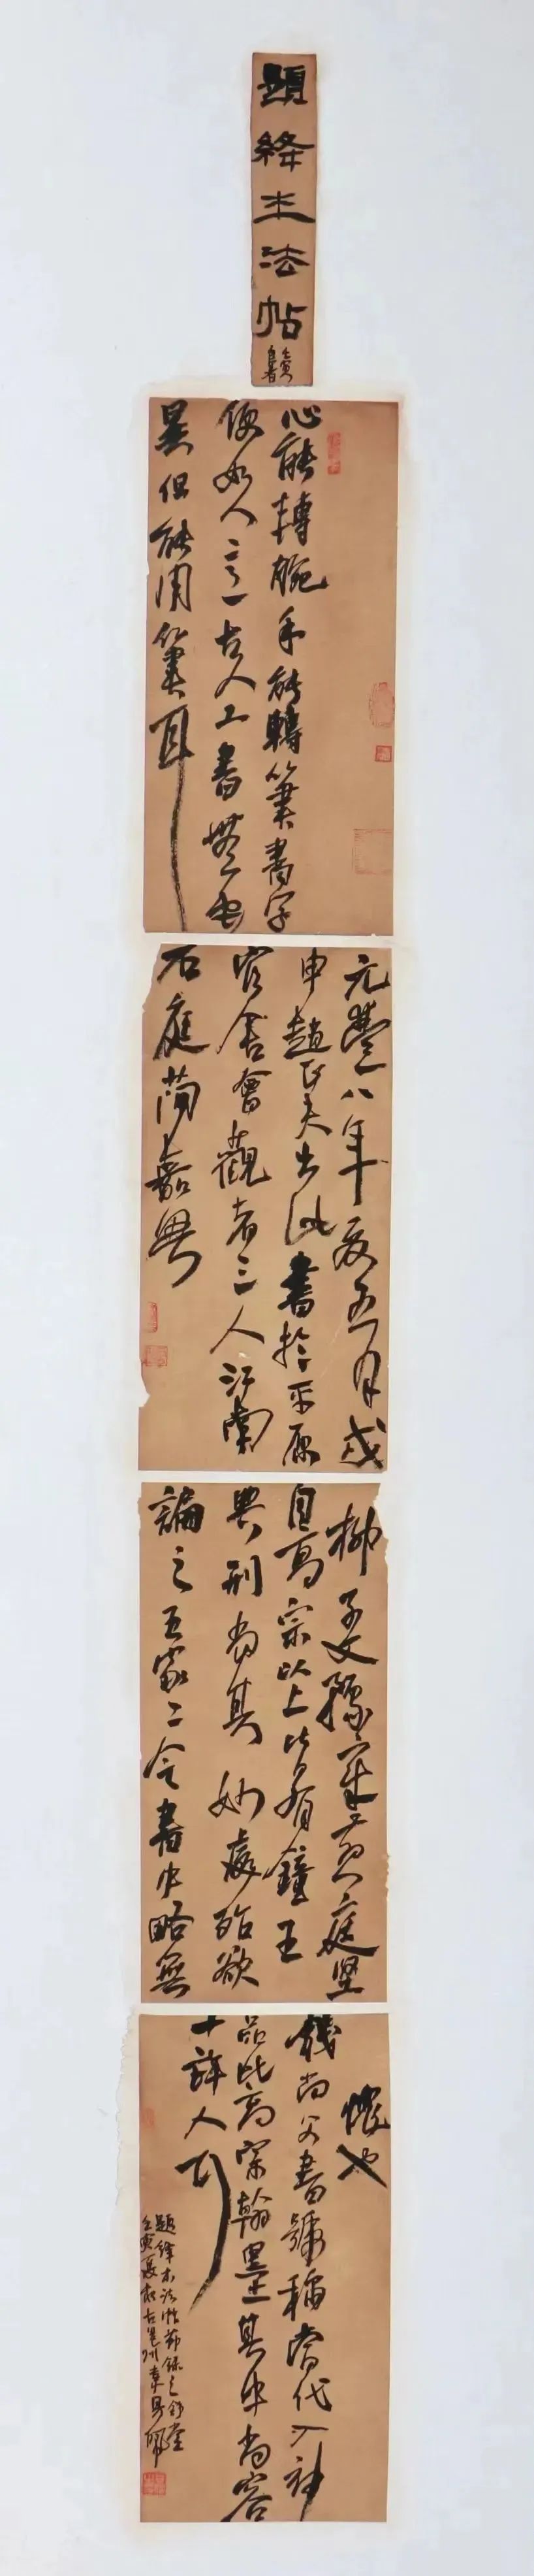 題絳本法帖
心能轉腕手能轉筆書字
便如人意古人工書無它
異但能用筆耳
元豐八年夏五月戊
申趙正夫出此書於平原
官舍會觀者三人江南
石庭簡嘉興
柳子文豫章黃庭堅
自高宗以上皆有鐘王
典刑尚其妙處殆欲
論之王家二令書中略無
愧也
錢尚父書號稱當代入神
品比高宗翰墨其中尚容
十許人耳
題絳本法帖節錄之
壬寅夏